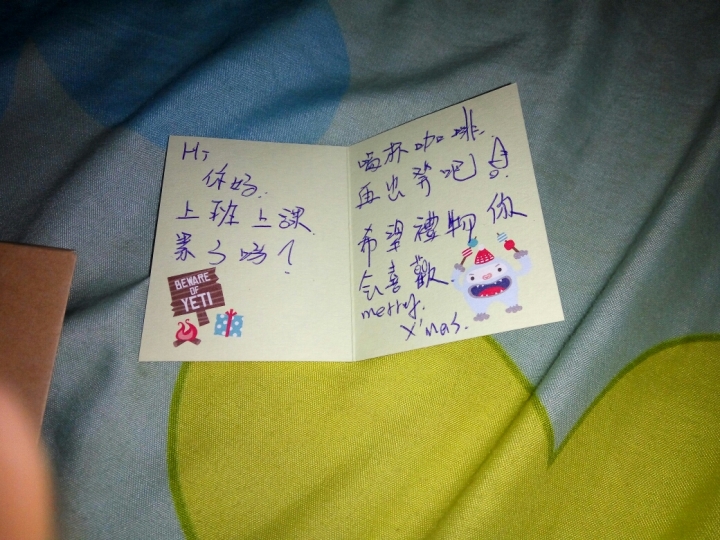 Hi
你好.
上班上課
累了嗎?
BEWARE
OF
YETI
喝杯咖啡.
再出發吧!
希望禮物你
會喜歡
merry.
X'mas.